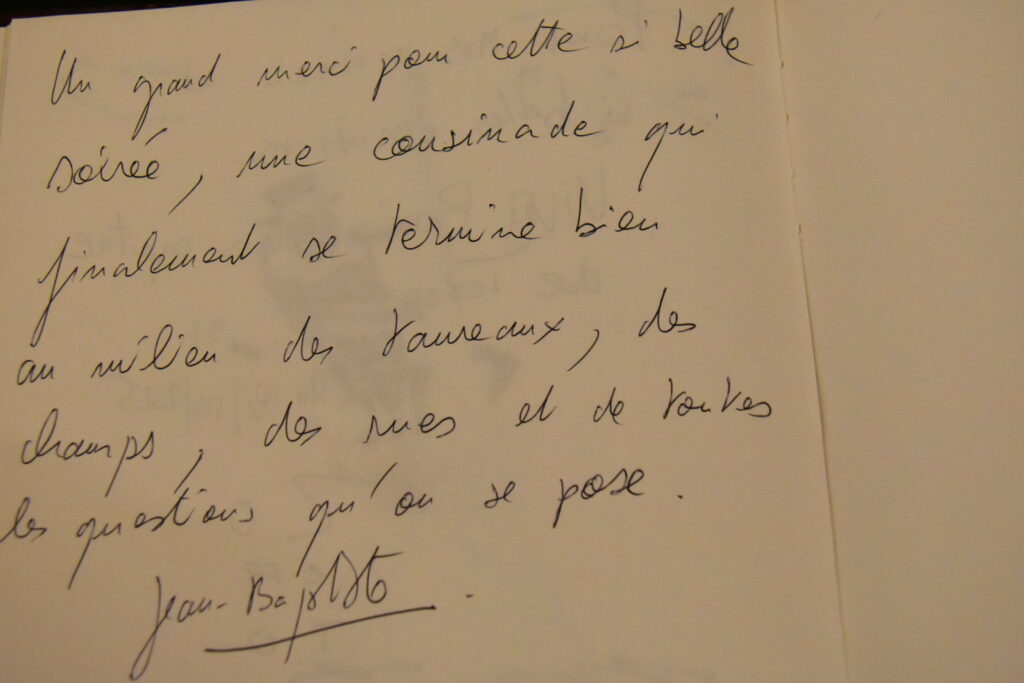 Un grand merci pour cette si belle
soirée, une cousinade qui
finalement se termine bien
au milieu des taureaux, des
champs, des rues et de toutes
les questions qu'on se pose.
Jean-Baptiste.